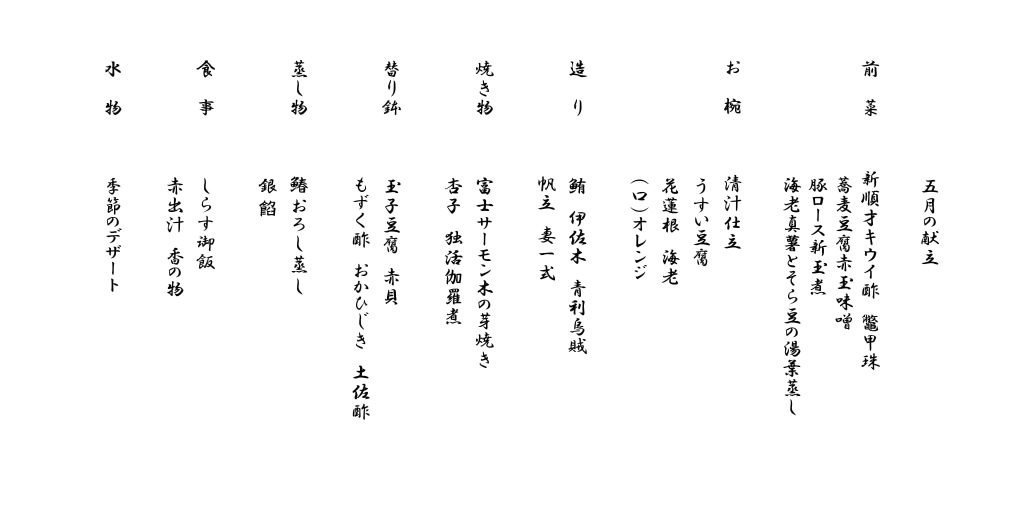 五月の献立
前菜
新順才キウイ酢 鼈甲珠
蕎麦豆腐赤玉味噌
豚ロース新玉煮
海老真薯とそら豆の湯葉蒸し
お椀
清汁仕立
うすい豆腐
花蓮根 海老
(口)オレンジ
造り
鮪 伊佐木 青利烏賊
帆立 妻一式
焼き物
富士サーモン木の芽焼き
杏子 独活伽羅煮
替り鉢
玉子豆腐 赤貝
もずく酢 おかひじき 土佐酢
蒸し物
鰆おろし蒸し
銀餡
食事
しらす御飯
赤出汁 香の物
水物
季節のデザート